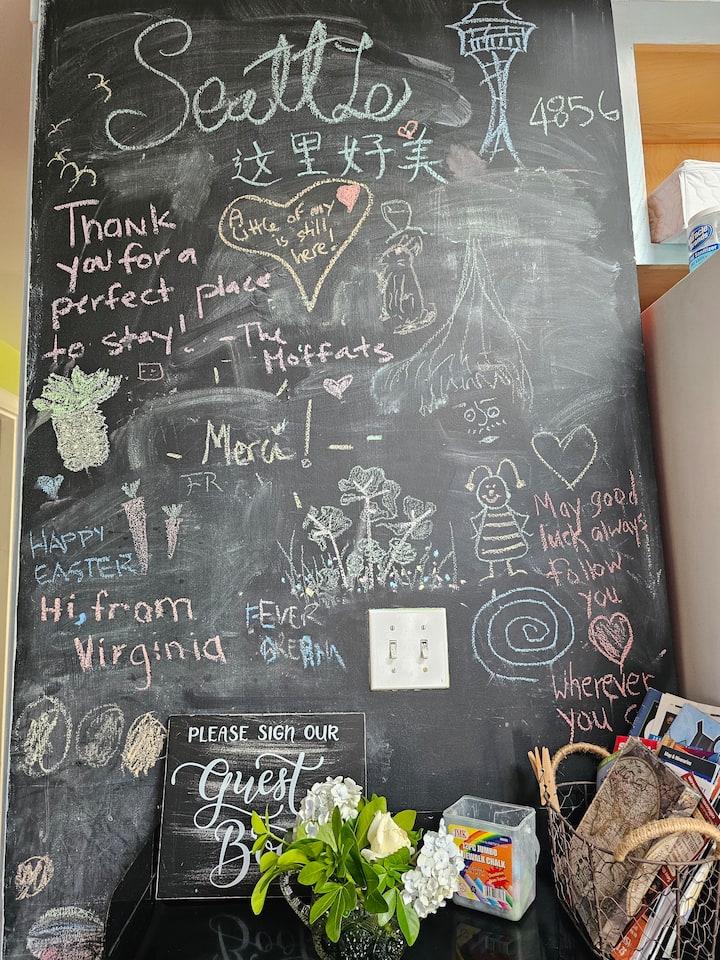 Seattle
4856
这里好美
A
Little of my
is still
here!
Thank
you for a
perfect place
to stay!
-The
Moffats
Merci!
FR
HAPPY
EASTER
Hi, from
Virginia
FEVER
DREAM
May good
luck always
follow
you
Wherever
you
PLEASE SIGN OUR
Guest
JUMBO
SIDEWALK CHALK